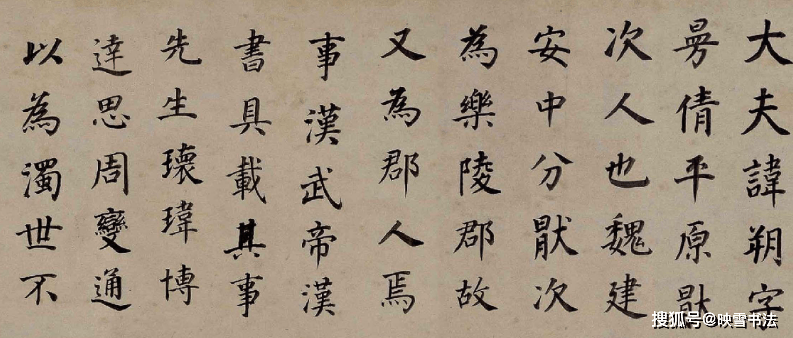 大夫諱朔字
曼倩平原猒
次人也魏建
安中分猒次
為樂陵郡故
又為郡人焉
事漢武帝漢
書具載其事
先生瓌瑋博
達思周變通
以為濁世不
搜狐号@映雪书法